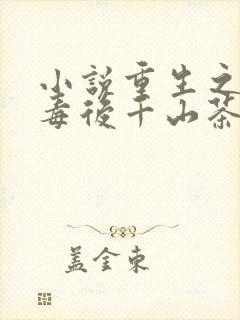 小説重生之
毒後千山茶
盖金東